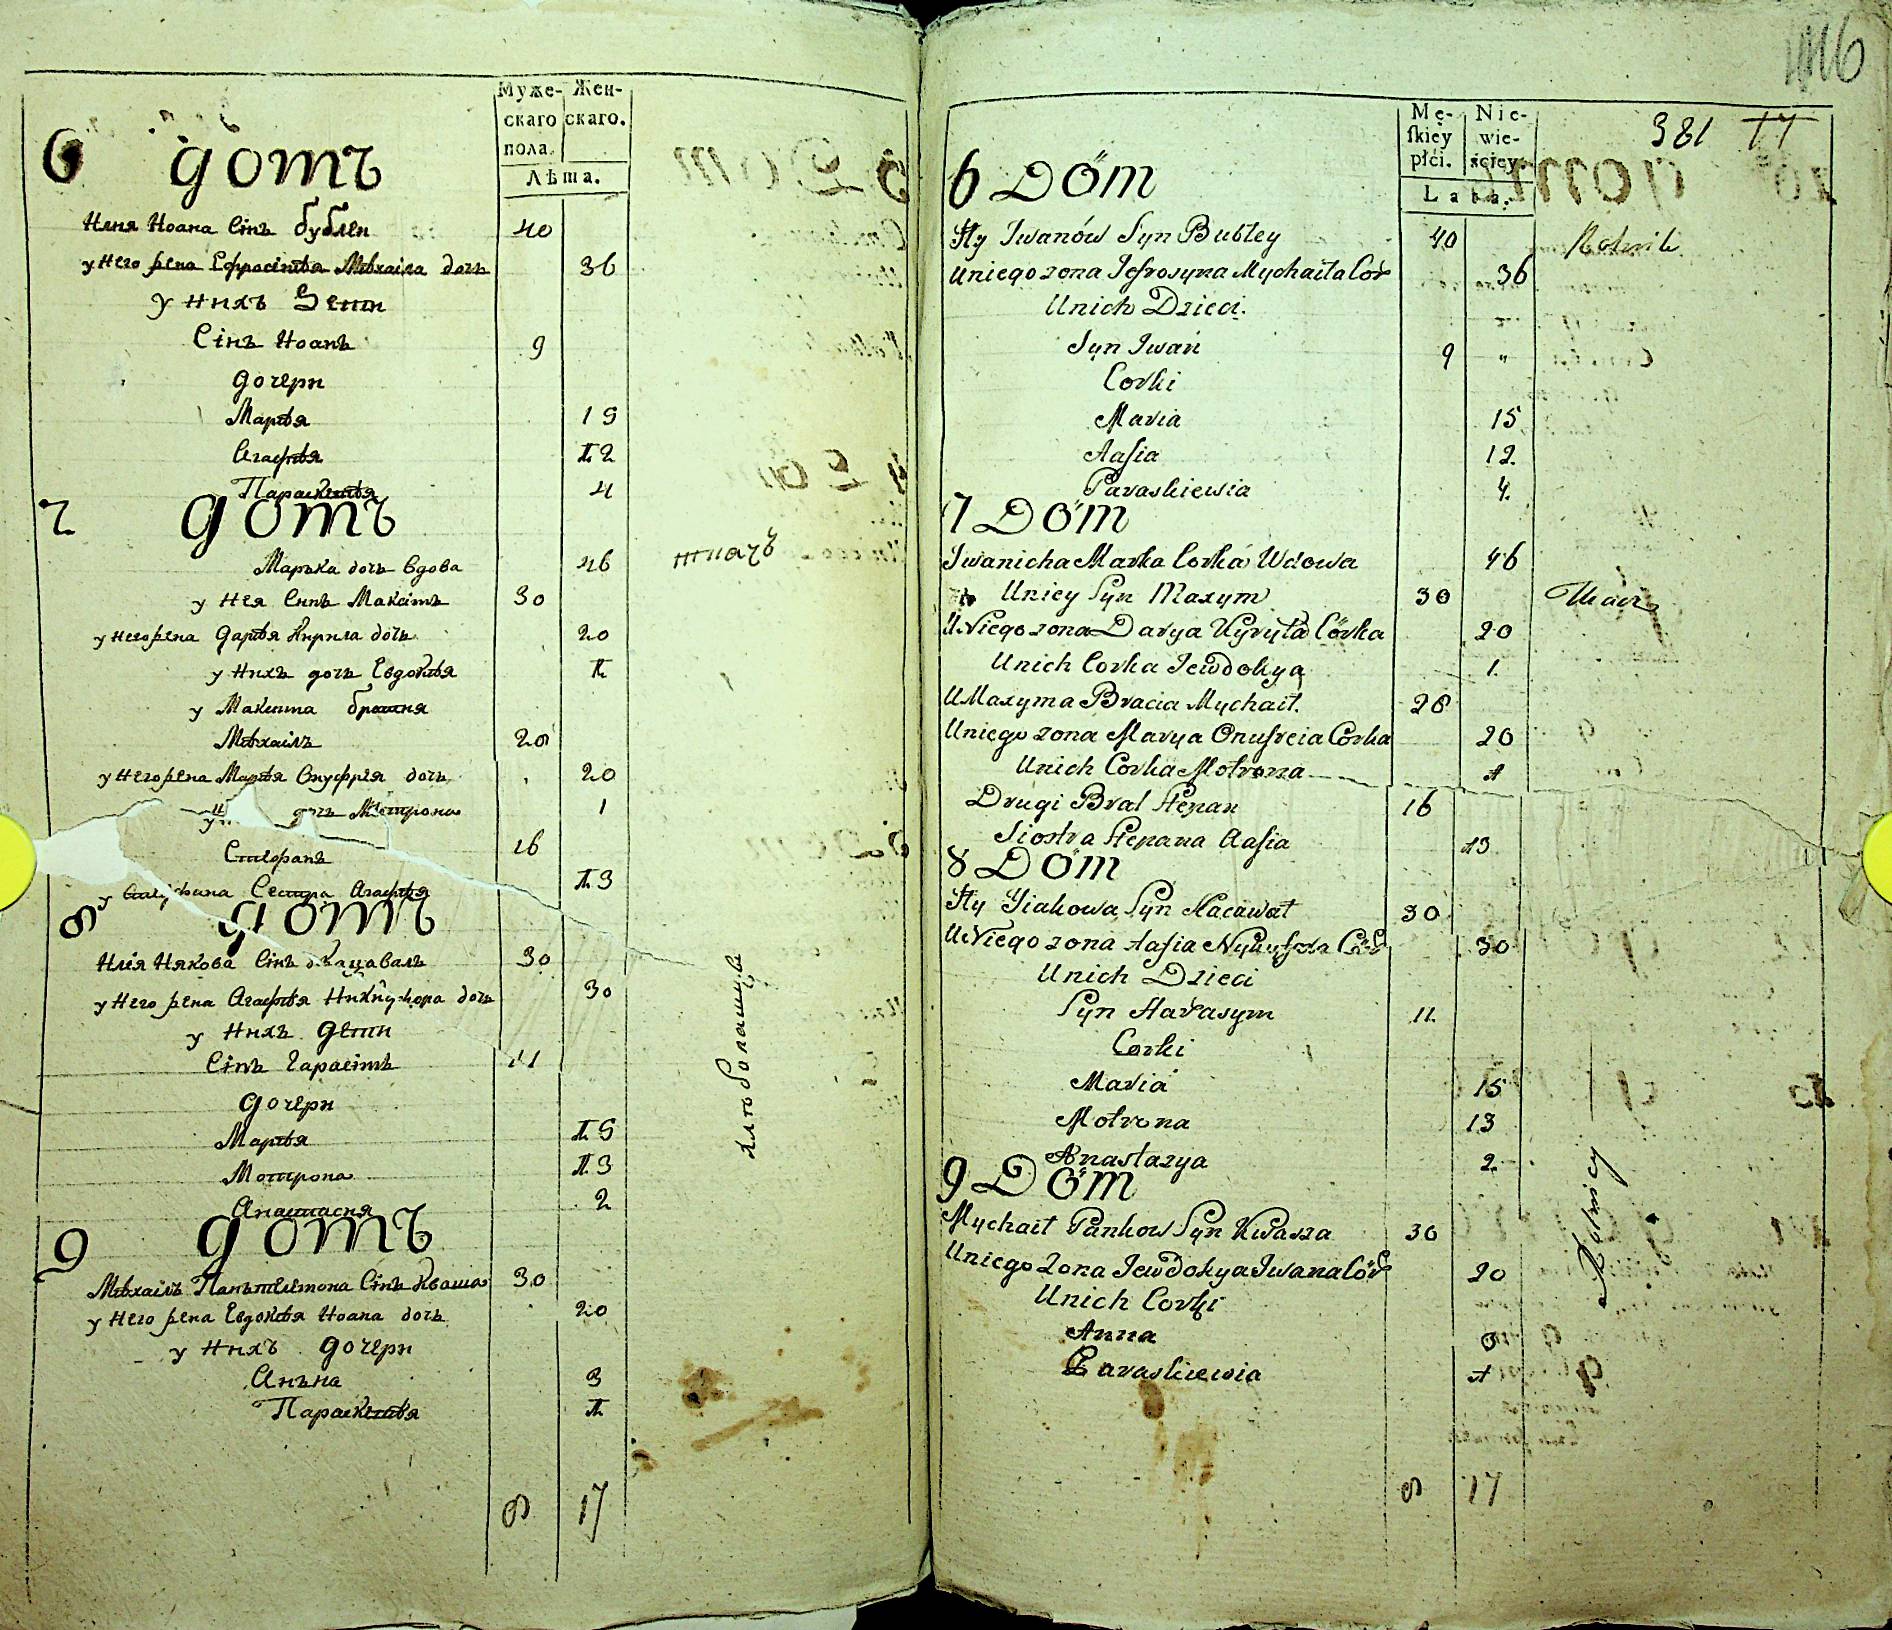 Муже- Жен-
скаго скаго.
пола.
Лѣта.
6 домъ
Илия Иоана Синъ бублеи 40
у Него жена Ефросиния Михаила дочь 36
у нихъ Дети
Сінъ Иоанъ 9
дочери
Мария 15
Агафия 12
Параскевия 4
7 домъ
Марька дочь вдова 46
ткачъ
у Нея Синъ Максимъ 30
у Него жена Дария Кирила дочь 20
у Нихъ дочь Евдокия 1
у Максима братия
Михаилъ 28
у Него жена Мария Онуфрия дочь 20
дочь Мотрона 1
Стефанъ 16
Сестра Агафия 13
8 домъ
Илія Иякова Сінъ 30
у Него жена Агафия Никифора дочь 30
у Нихъ дети
Синъ Гарасімъ 11
дочери
Мария 15
Мотрона 13
Анастасия 2
хлѣбопашцы
9 домъ
Михаилъ Панътелемона Синъ Кваша 30
у Него жена Евдокия Иоана дочь 20
у Нихъ дочери
Анъна 3
Параскевия 1
8 17
116
381 77
Mę- Nie-
skiey wie-
płći. ściey.
Lata.
6 Dom
Ily Iwanów Syn Bubley 40 Rolnik
Uniego zona Jefrosyna Mychaiła Cor 36
Unich Dzieci.
Syn Iwan 9 "
Corki
Maria 15
Aafia 12.
Paraskiewia 4.
7 Dom
Iwanicha Marka Corka Wdowa 46
Uniey Syn Maxym 30 Tkacz
UNiego zona Darya Kyryła Córka 20
Unich Corka Jewdokya 1.
UMaxyma Bracia Mychaił. 28
Uniego zona Marya Onufreia Corka 20
Unich Corka Motrona 1
Drugi Brat Stepan 16
Siostra Stepana Aafia 13
8 Dom
Ily Yiakowa Syn Kacawał 30
UNiego zona Aafia Nykyfora Cór 30
Unich Dzieci
Syn Harasym 11.
Corki
Maria 15
Motrona 13
Anastazya 2.
Rolnicy
9 Dom
Mychaił Pankow Syn Kwasza 30
Uniego Zona Jewdokya Iwana Cór 20
Unich Corki
Anna 3
Paraskiewia 1
8 17